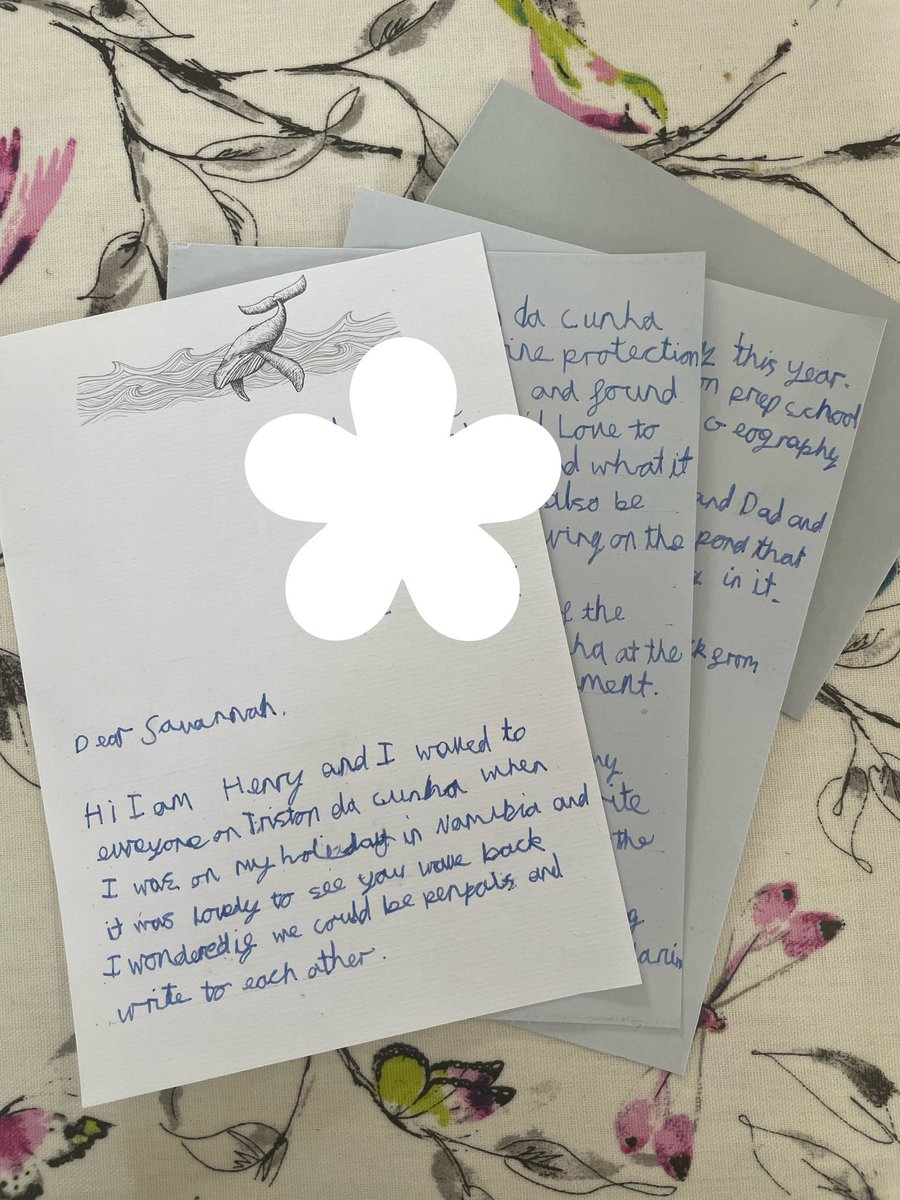 Dear Savannah,
Hi I am Henry and I waved to
everyone on Triston da cunha when
I was on my holiday in Namibia and
it was lovely to see you wave back
I wondered if we could be penpals and
write to each other.
da cunha
ine protection
and found
Love to
d what it
also be
ving on the
f the
ha at the
ment.
ny
ite
the
g
this year.
on prep school
Geography
and Dad and
pond that
in it.
k from